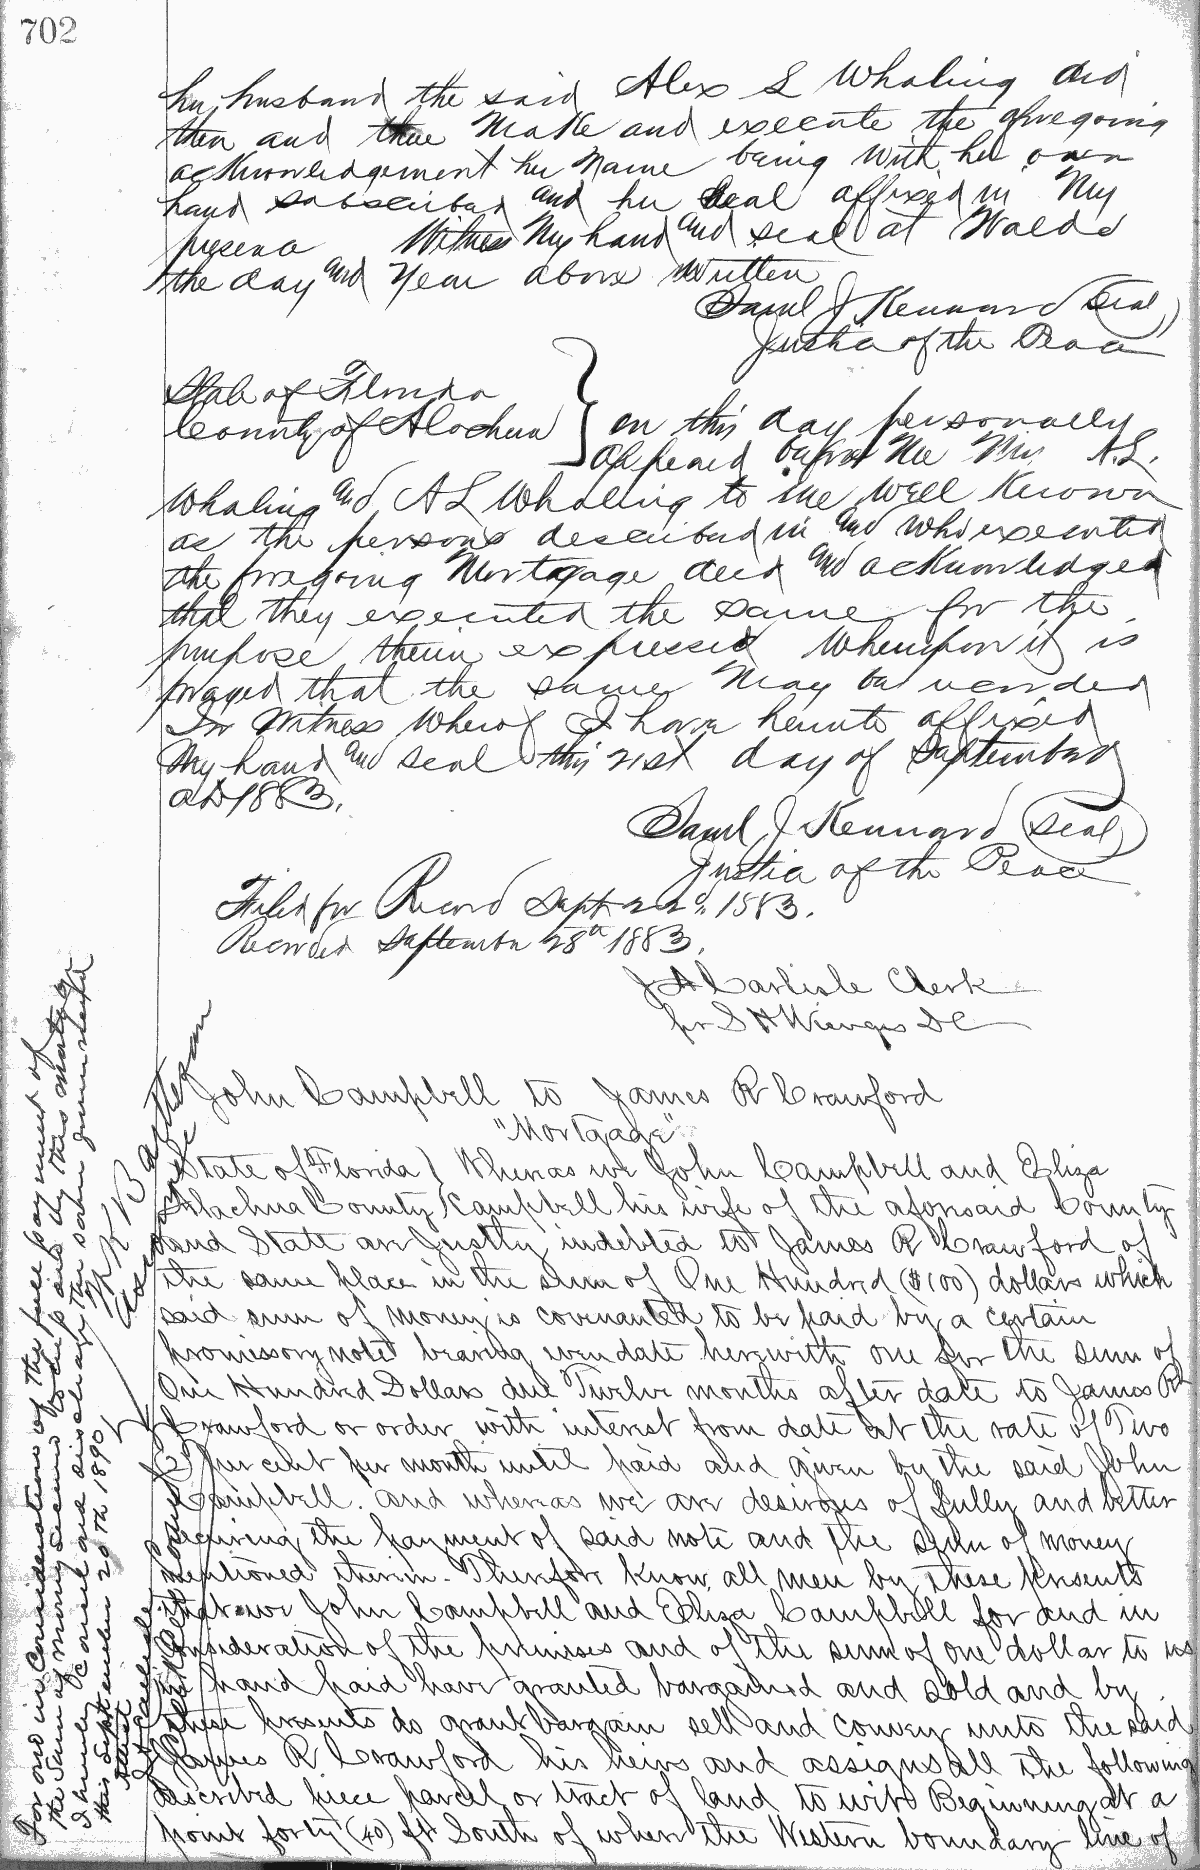 702
her husband the said Alex S Whaling did
then and there Make and execute the foregoing
acknowledgement her Name being with her own
hand subscribed and her seal affixed in My
presence Witness My hand and seal at Waldo
the day and Year above written
Saml J Kennard (Seal)
Justice of the Peace
State of Florida
County of Alachua } on this day personally
appeared before Me Mrs A.L.
Whaling and A L Whaling to me Well Known
as the persons described in and who executed
the foregoing Mortgage deed and acknowledged
that they executed the same for the
purpose therin expressed Whereupon it is
prayed that the same May be recorded
In Witness Wherof I have hereunto affixed
My hand and seal this 21st day of September
AD 1883.
Saml J Kennard (Seal)
Justice of the Peace
Filed for Record Sept 22d, 1883.
Recorded September 28th 1883.
J A Carlisle Clerk
per S H Wienges DC
John Campbell to James R Crawford
"Mortgage"
State of Florida ) Whereas we John Campbell and Eliza
Alachua County ) Campbell his wife of the aforesaid County
and State are Justly indebted to James R Crawford of
the same place in the sum of One Hundred ($100) dollars which
said sum of money is covenanted to be paid by a certain
promissory note bearing even date herewith one for the sum of
One Hundred Dollars due Twelve months after date to James R
Crawford or order with interest from date at the rate of Two
(2) per cent per month until paid and given by the said John
Campbell. and whereas we are desirous of fully and better
securing the payment of said note and the sum of money
mentioned therin. Therefore know all men by these Presents
that we John Campbell and Eliza Campbell for and in
consideration of the premises and of the sum of one dollar to us
in hand paid have granted bargained and sold and by
these presents do grant bargain sell and convey unto the said
James R Crawford his heirs and assigns all the following
described piece parcel or tract of land to wit Beginning at a
point forty (40) ft South of wher the Western boundary line of
For and in Consideration of the full payment of
the Sum of money Secured to be paid by this mortgage
I hereby Cancel and discharge the same
this September 20th 1890
Attest
J A Carlisle
Clerk Circuit Court